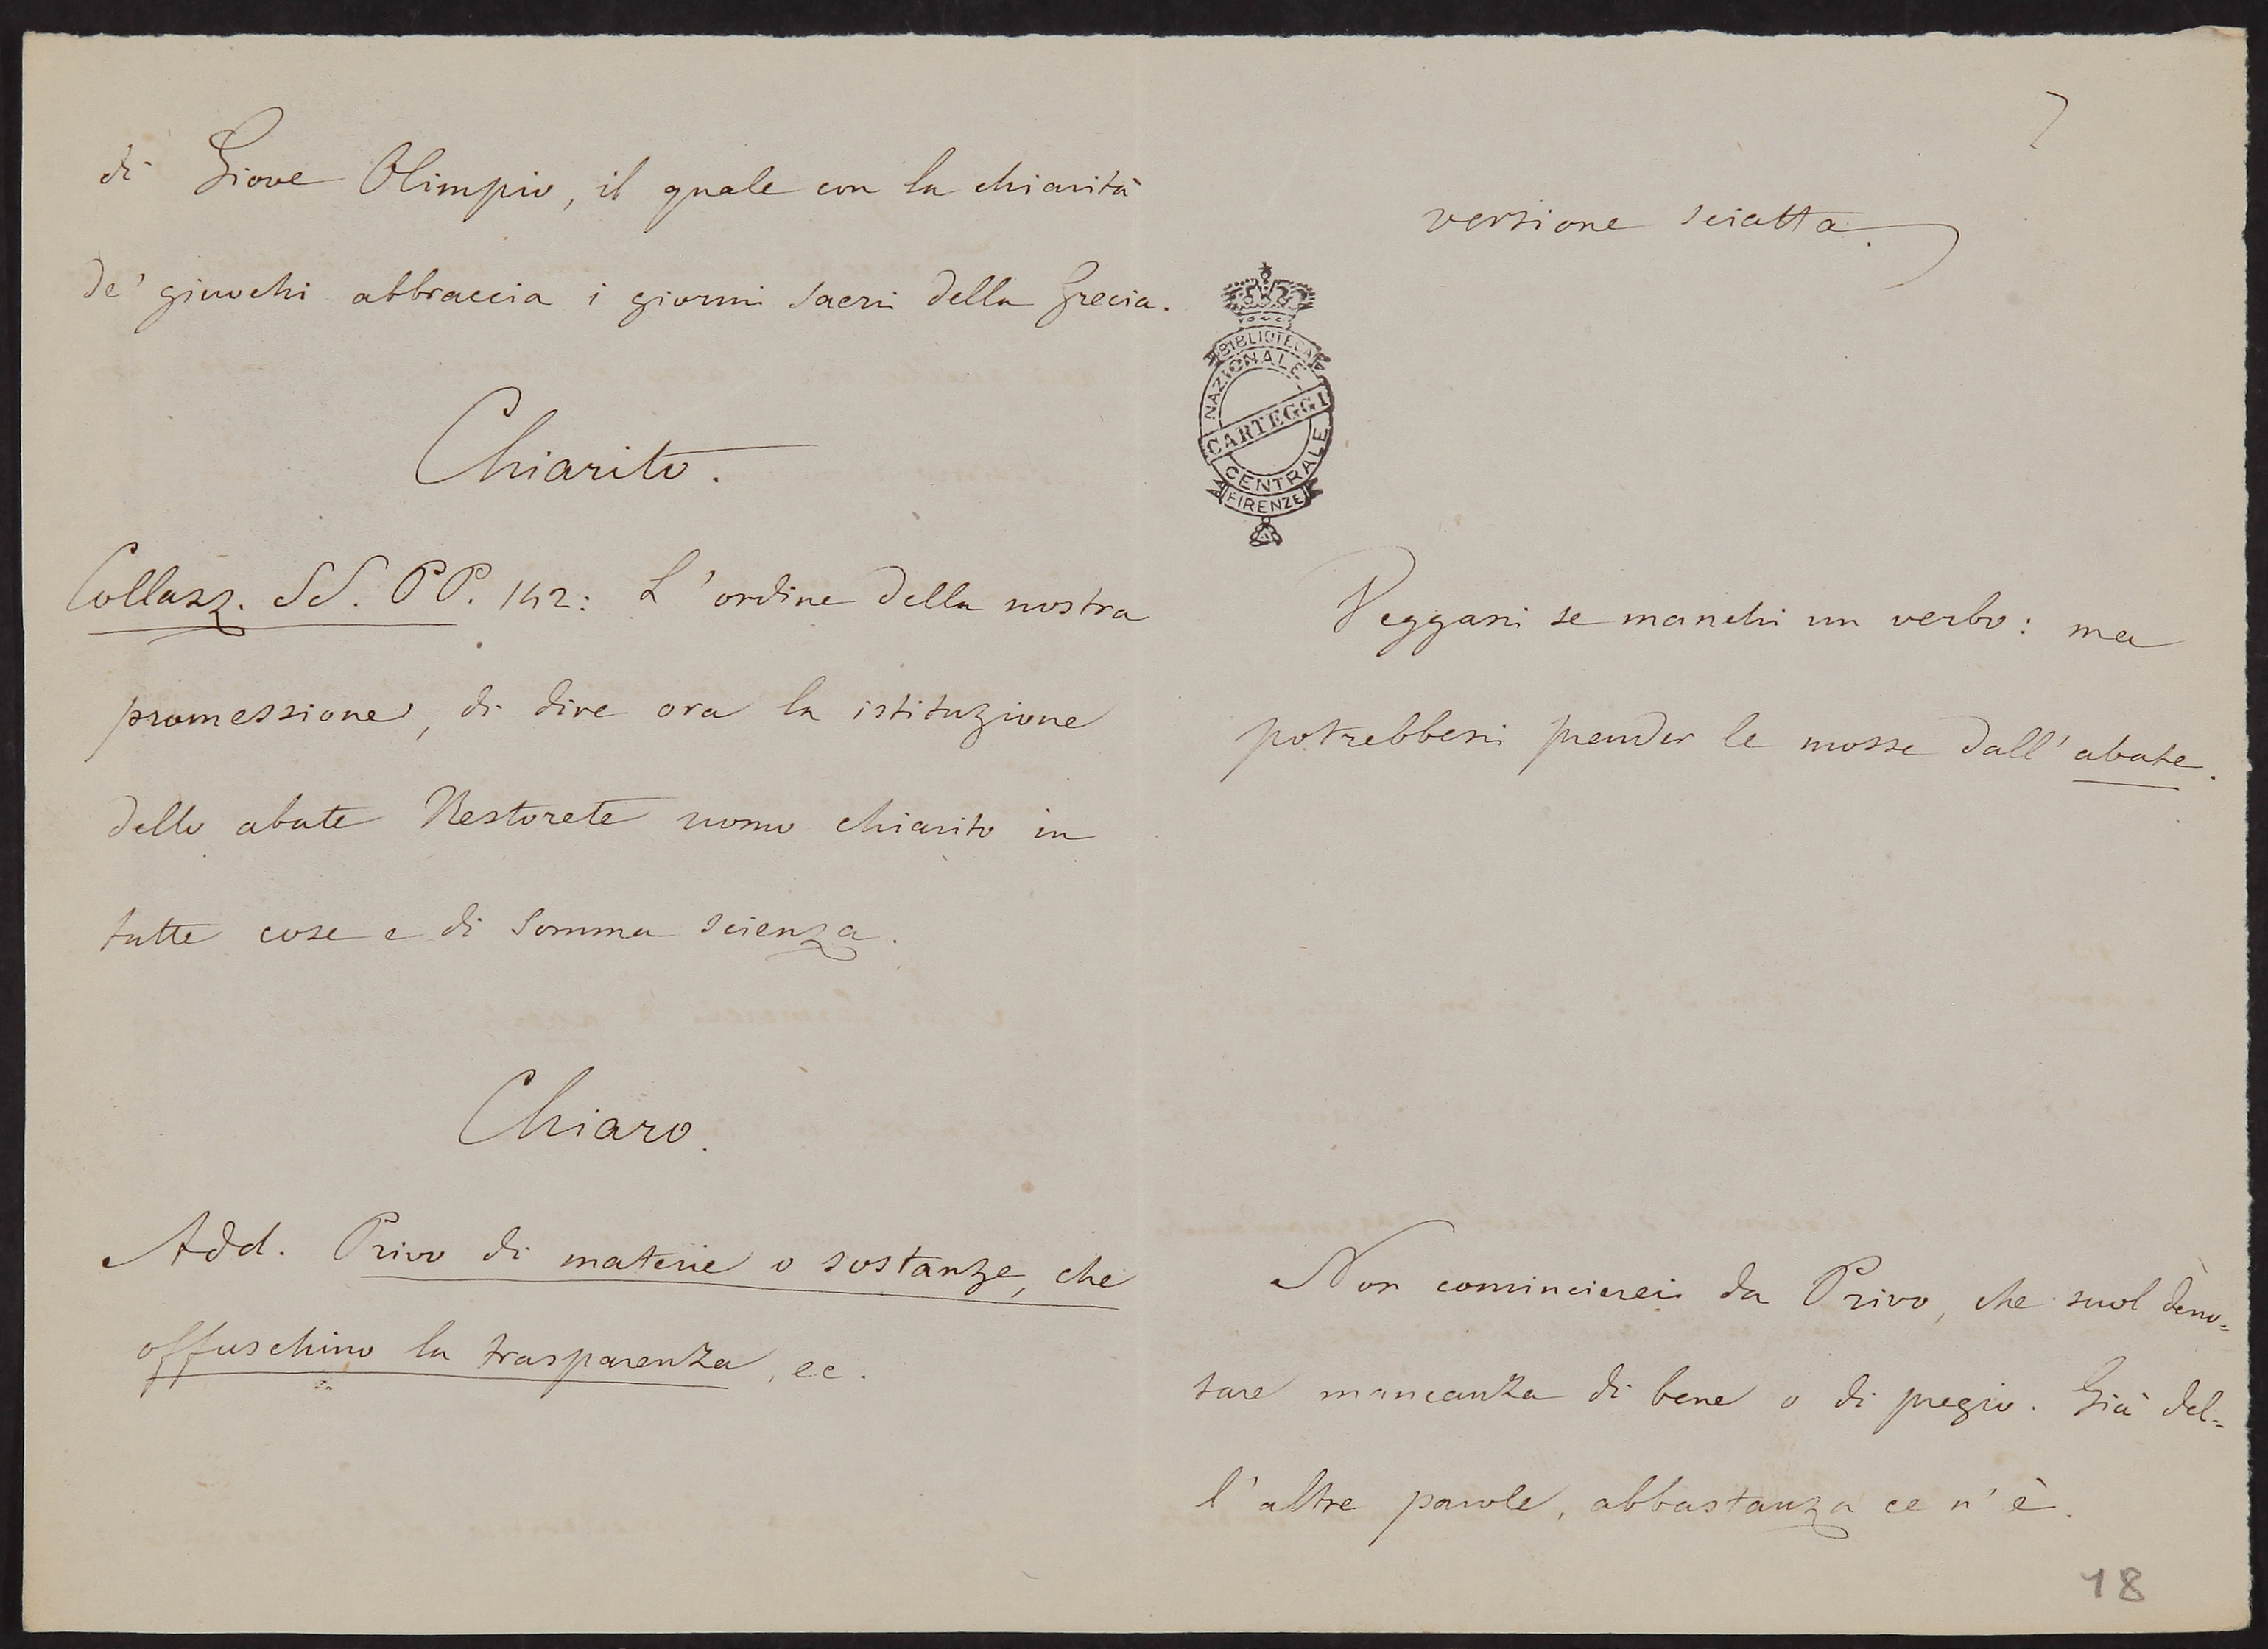 di Giove Olimpio, il quale con la chiarità
de' giuochi abbraccia i giorni sacri della Grecia.
Chiarito.
Collazz. SS. PP. 142: L'ordine della nostra
promessione, di dire ora la istituzione
dello abate Nestorete uomo chiarito in
tutte cose e di somma scienza.
Chiaro.
Add. Privo di materie o sostanze, che
offuschino la trasparenza, ec.
7
versione sciatta.
BIBLIOTECA
NAZIONALE
CARTEGGI
CENTRALE
FIRENZE
Veggasi se manchi un verbo: ma
potrebbesi prender le mosse dall'abate.
Non comincierei da Privo, che suol deno=
tare mancanza di bene o di pregio. Già del=
l'altre parole, abbastanza ce n'è.
18